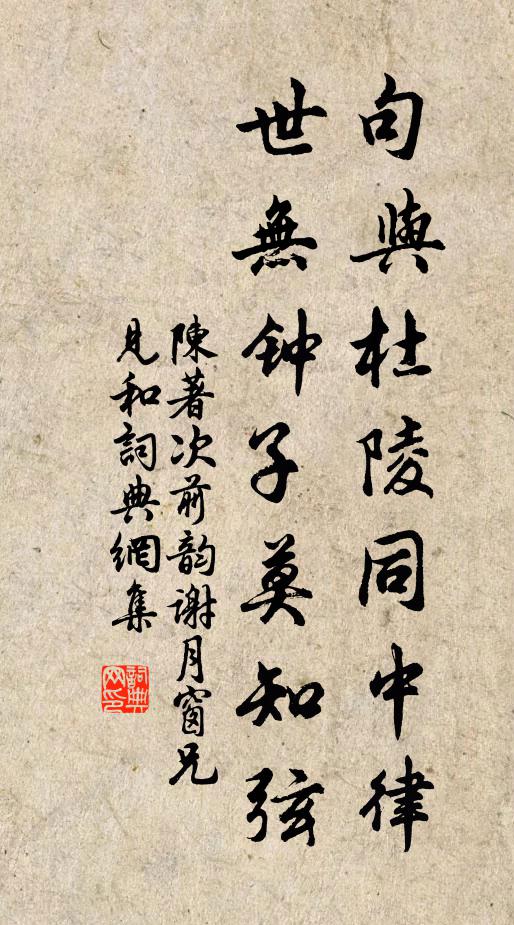 句與杜陵同中律
世無钟子莫知弦
陳著次前韵謝月窗兄
見和詞典網集
詞典网印